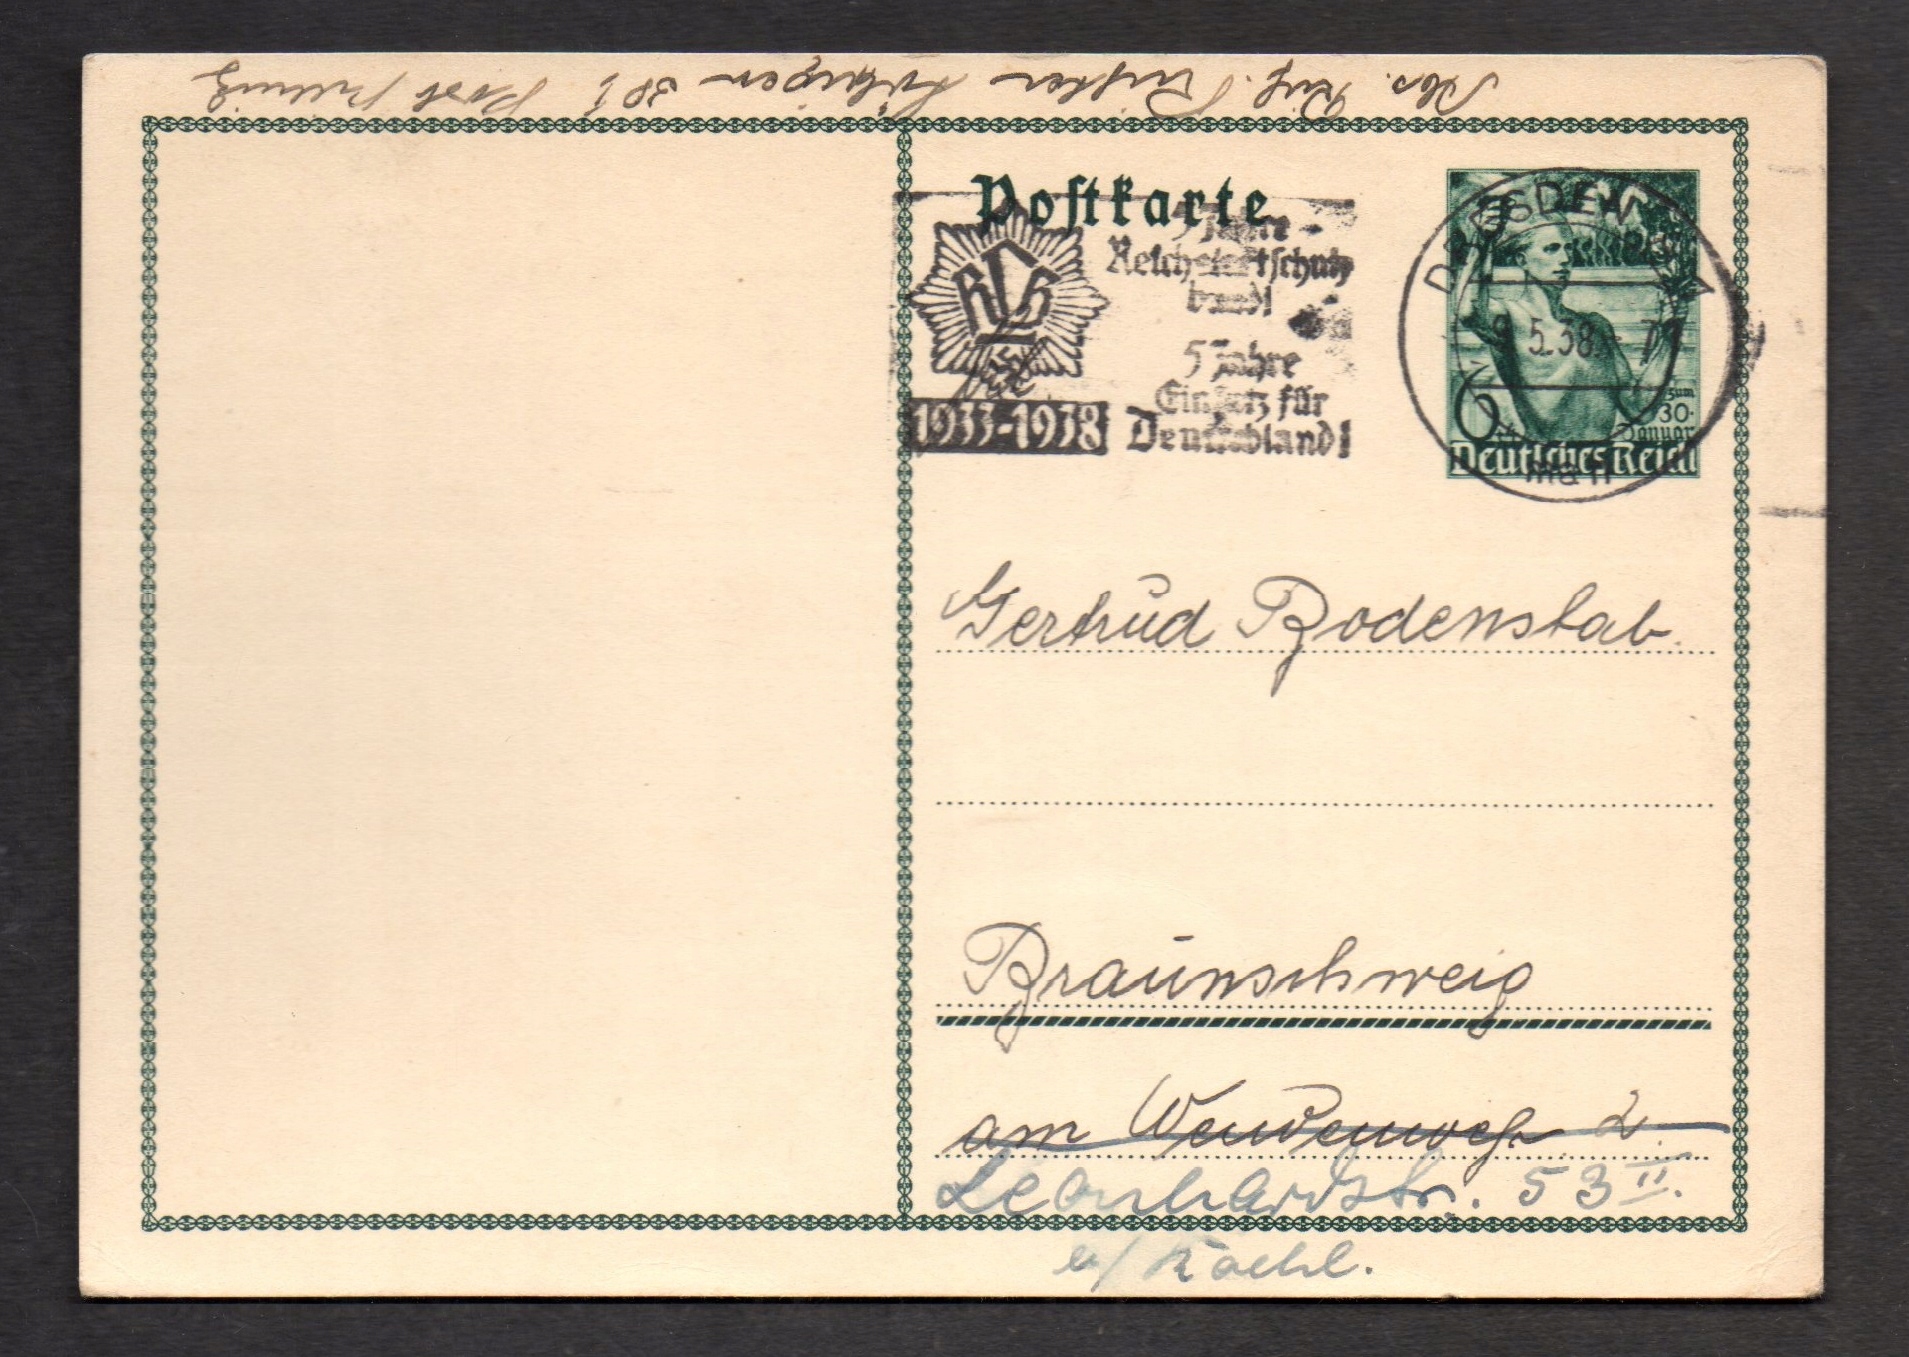 Postkarte
5 Jahre
Reichsluftschutz
bund!
5 Jahre
Einsatz für
Deutschland!
RLB
1933-1938
DRESDEN
5.38
6
zum
30.
Januar
Deutsches Reich
Gertrud Bodenstab.
Braunschweig
am Wendenweg 2.
Leonhardstr. 53 II.
Abs. Richter